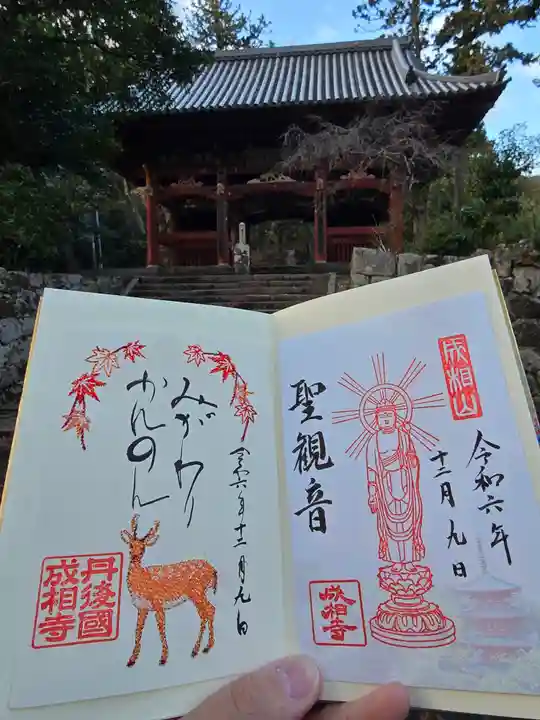 成相山
令和六年
十二月九日
聖観音
成相寺
みがわり
かんのん
令和六年十二月九日
丹後國
成相寺